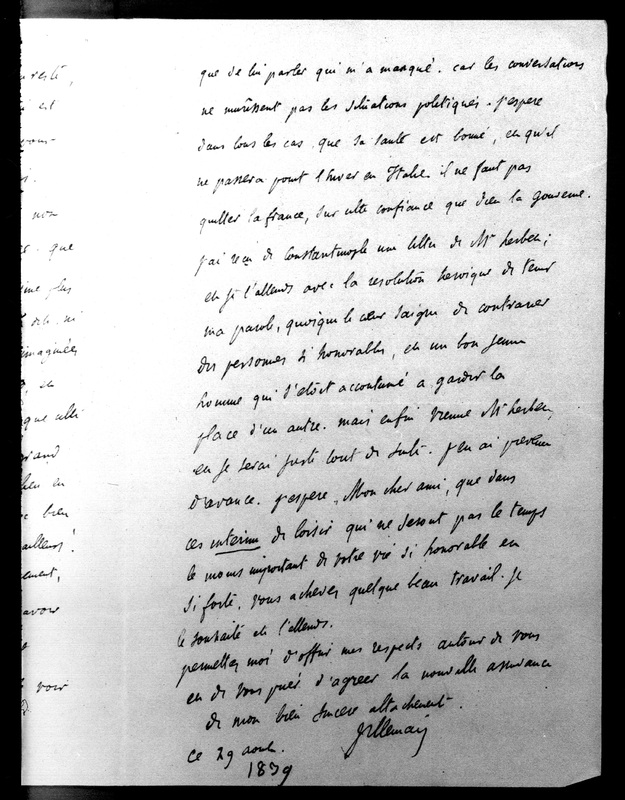 que de lui parler qui m'a manqué. car les conversations
ne murissent pas les situations politiques. j'espere
dans tous les cas, que sa santé est bonne, et qu'il
ne passera point l'hiver en Italie. il ne faut pas
quitter la france, sur cette confiance que dieu la gouverne.
j'ai reçu de Constantinople une lettre de Mr herbet;
et je l'attends avec la resolution heroique de tenir
ma parole, quoique le cœur saigne de contrarier
des personnes si honorables, et un bon jeune
homme qui s'etoit accoutumé a garder la
place d'un autre. mais enfin vienne Mr herbet,
et je serai juste tout de suite. j'en ai prevenu
d'avance. j'espere, Mon cher ami, que dans
ces interim de loisir qui ne seront pas le temps
le moins important de votre vie si honorable et
si forte, vous acheves quelque beau travail. je
le souhaite et l'attends.
permettez moi d'offrir mes respects autour de vous
et de vous prier d'agreer la nouvelle assurance
de mon bien sincere attachement.
Villemain
ce 29 aout.
1839
resté,
est
vous
non
que
plus
ni
imaginées
et
que celle
grand
lieu en
bien
ailleurs!
avoir
voir